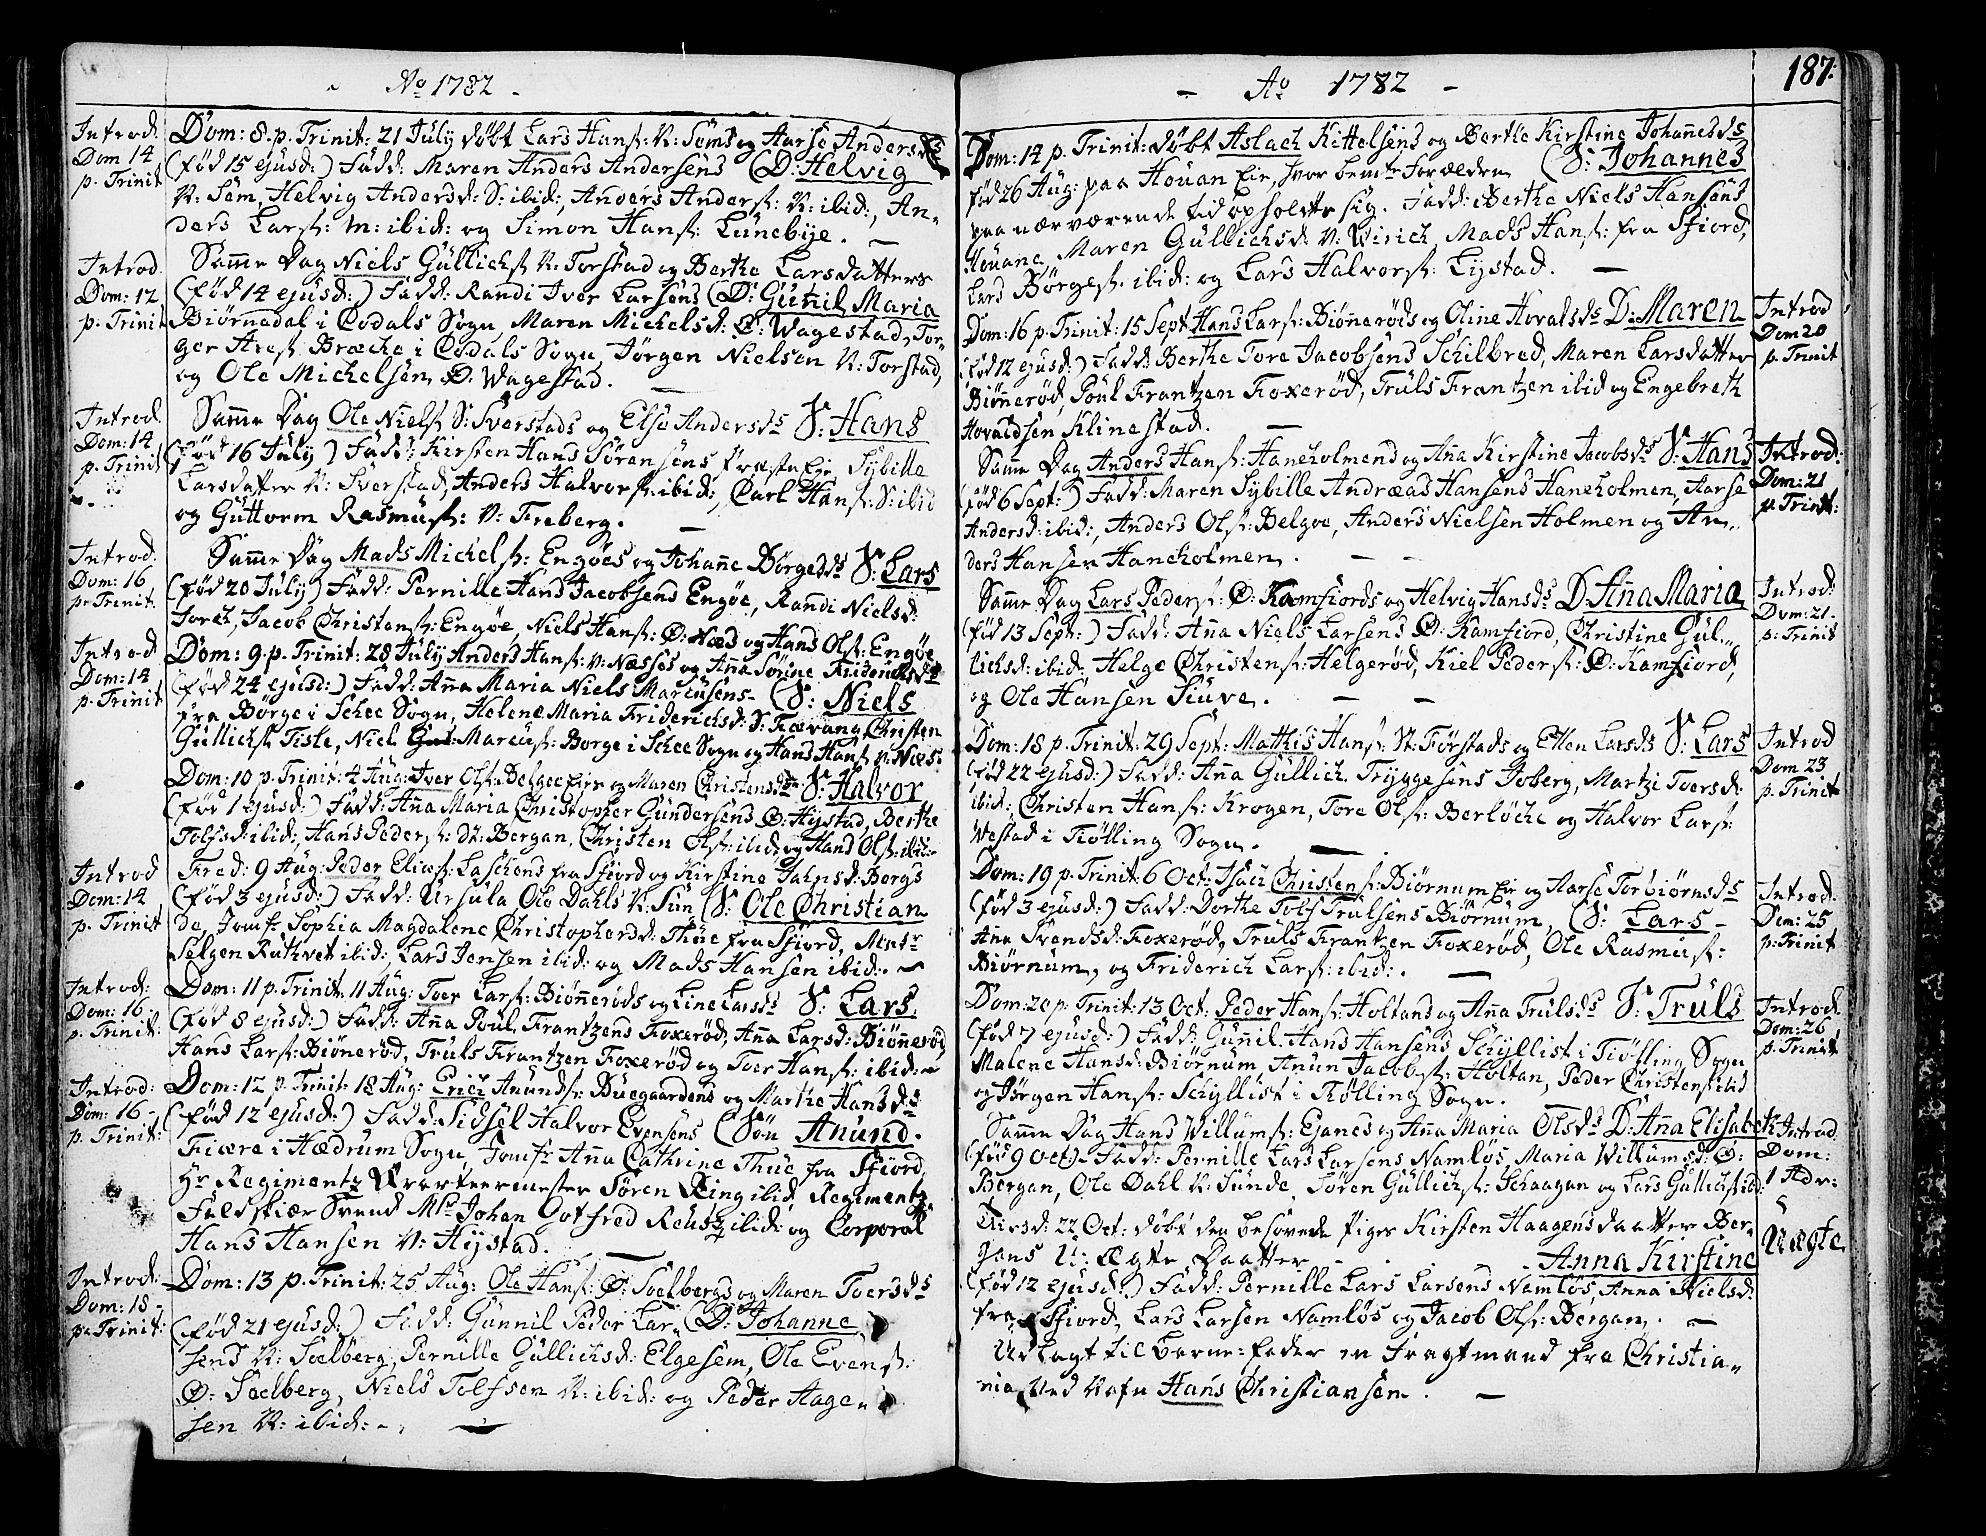 No 1782 -
Introd. Dom 14 p. Trinit
Dom: 8. p. Trinit: 21 July döbt Lars Hans: N: Sems og Aarse Andersds
(föd 15 ejusd:) Fadd: Maren Anders Andersens (D: Helvig
N: Sem, Helvig Andersd: S: ibid:, Anders Anders: N: ibid:, An-
ders Lars: M: ibid: og Simon Hans: Lunebye. -
Introd Dom: 12 p: Trinit
Samme Dag Niels Gullichs: N: Torstad og Berthe Larsdatters
(föd 14 ejusd:) Fadd: Randi Iver Larsens (D: Gunil Maria
Biörnedal i Qvdals Sogn, Maren Michelsd: Ø: Wagestad, Tor-
ger Ares: Bræche i Qvdals Sogn, Jörgen Nielsen N: Torstad,
og Ole Michelsen Ø: Wagestad. -
Introd Dom: 14 p: Trinit
Samme Dag Ole Niels: S: Sverstads og Else Andersds S: Hans
(föd 16 July) Fadd: Kirsten Hans Sörensens Præste Eie, Sybille
Larsdatter N: Sverstad, Anders Halvors: ibid:, Carl Hans: S: ibid
og Guttorm Rasmus: N: Freberg. -
Introd: Dom: 16 p: Trinit.
Samme Dag Mads Michels: Engöes og Johanne Börgesds S: Lars
(föd 20 July) Fadd: Pernille Hans Jacobsens Engöe, Randi Nielsd:
Jorch, Jacob Christens: Engöe, Niels Hans: Ø: Næs og Hans Ols: Engöe
Introd Dom: 14 p. Trinit
Dom: 9. p. Trinit: 28 July Anders Hans: N: Næsses og Anna Sörine Friderichsds
(föd 24 ejusd:) Fadd: Anna Maria Niels Marcusens (S: Niels
fra Börge i Schee Sogn, Helene Maria Friderichsd: S: Fævang, Christen
Gullichs: Tisle, Niels Marcus: Borge i Schee Sogn og Hans Hans: N: Næs.
Dom: 10 p. Trinit: 4 Aug: Iver Ols: Belgoe Eie og Maren Christensds S: Halvor
(föd 1 ejusd:) Fadd: Anna Maria Christopher Gundersens Ø: Hystad, Berthe
Tolfsd: ibid:, Hans Peders: St: Bergan, Christen Ols: ibid: og Hans Ols: ibid:
Introd Dom: 14 p. Trinit
Fred: 9 Aug: Peder Elias: Laschens fra Sfiord og Kirstine Jahnsd: Borgs
(föd 3 ejusd:) Fadd: Ursula Ole Dahls N: Sun (S: Ole Christian
de, Jomfr Sophia Magdalene Christophersd: Thue fra Sfiord, Monsr
Selgen Ruthvet ibid:, Lars Jensen ibid: og Mads Hansen ibid: -
Introd: Dom: 16 p: Trinit:
Dom: 11 p: Trinit: 11 Aug: Toer Lars: Biönneröds og Line Larsds S: Lars.
(föd 8 ejusd:) Fadd: Anna Poul Frantzens Foxeröd, Anna Larsd: Biönneröd,
Hans Lars: Biönneröd, Truls Frantzen Foxeröd og Toer Hans: ibid: -
Introd: Dom: 16 - p: Trinit:
Dom: 12 p. Trinit: 18 Aug: Erich Anunds: Buegaardens og Marthe Hansds:
(föd 12 ejusd:) Fadd: Sidsel Halvor Evensens (Sön Anund.
Fiære i Hædrum Sogn, Jomfr Anna Cathrine Thue fra Sfiord,
Hr Regimentz Qvarteermester Sören Ring ibid, Regimentz
Feldskiær Svend Mr Johan Gotfred Reusz ibid: og Corporal
Hans Hansen N: Hystad. -
Introd: Dom: 18 - p: Trinit:
Dom: 13 p. Trinit: 25 Aug: Ole Hans: Ø: Soelbergs og Maren Toersds
(föd 21 ejusd:) Fadd: Gunnil Peder Lar- (D: Johanne
sens N: Soelberg, Pernille Gullichsd: Elgesem, Ole Evens:
Ø: Soelberg, Niels Tolfsen N: ibid: og Peder Aage-
sen N: ibid: -
- Ao 1782 -
187:
Dom: 14 p. Trinit: döbt Aslach Kittelsens og Berthe Kirstine Johannesds
föd 26 Aug: paa Houan Eie, hvor bemte Forældre (S: Johannes
paa nærværende tid opholdte sig. Fadd: Berthe Niels Hansens
Houane Maren Gullichsd: N: Wirich, Mads Hans: fra Sfiord,
Lars Börges: ibid: og Lars Halvors: Lystad. -
Dom: 16 p. Trinit: 15 Sept Hans Lars: Biönneröds og Oline Hovalsds D: Maren
(föd 12 ejusd:) Fadd: Berthe Tore Jacobsens Schilbred, Maren Larsdatter
Biönneröd, Poul Frantzen Foxeröd, Truls Frantzen ibid og Engebreth
Hovaldsen Klinestad. -
Introd Dom 20 p. Trinit
Samme Dag Anders Hans: Haneholmens og Ana Kirstine Jacobsds S: Hans
(föd 6 Sept:) Fadd: Maren Sybille Andreas Hansens Haneholmen, Aarse
Andersd: ibid:, Anders Ols: Belgoe, Anders Nielsen Holmen og An-
ders Hansen Haneholmen. - -
Introd: Dom: 21 p. Trinit:
Samme Dag Lars Peders: Ø: Kamfiords og Helvig Hansds D Anna Maria
(föd 13 Sept:) Fadd: Anna Niels Larsens Ø: Kamfiord, Christine Gul-
lichsd: ibid, Helge Christens: Helgeröd, Kiel Peders: Ø: Kamfiord,
og Ole Hansen Siuve. - -
Introd: Dom: 21 - p: Trinit
Dom: 18 p. Trinit: 29 Sept: Mathis Hans: St: Förstads og Ellen Larsds S: Lars
(föd 22 ejusd:) Fadd: Anna Gullich Tryggesens Joberg, Martzi Toersd:
ibid: Christen Hans: Krogen, Tore Ols: Berlöche og Halvor Lars:
Westad i Tiölling Sogn. -
Introd Dom 23 p. Trinit
Dom: 19 p. Trinit: 6 Oct: Isach Christens: Biörnum Eie og Aarse Torbiörnsds
(föd 3 ejusd:) Fadd: Dorthe Tolf Trulsens Biörnum, (S: Lars -
Ana Svendsd: Foxeröd, Truls Frantzen Foxeröd, Ole Rasmus:
Biörnum, og Friderich Lars: ibid: -
Introd. Dom: 25 p: Trinit
Dom: 20 p. Trinit: 13 Oct: Peder Hans: Holtans og Anna Trulsds S: Truls
(föd 7 ejusd:) Fadd: Gunnil Hans Hansens Schyllist i Tiölling Sogn
Malene Hansd: Biörnum, Anun Jacobs: Holtan, Peder Christens: ibid
og Jörgen Hans: Schyllist i Tiölling Sogn.
Introd Dom: 26 p: Trinit
Samme Dag Hans Willums: Ejanes og Anna Maria Olsds D: Ana Elisabeth
(föd 9 Oct) Fadd: Pernille Lars Larsens Namlös, Maria Willumsd: Ø:
Bergan, Ole Dahl N: Sunde, Sören Gullichs: Schaagan og Lars Gullichs: ibid:
Introd Dom: 1 Adv:
Tirsd: 22 Oct: döbt den besovede Piges Kirsten Haagensdaatter Ber-
gans U: Ægte Daatter - - Anna Kirstine
Uægte
(föd 12 ejusd:) Fadd: Pernille Lars Larsens Namlös, Anna Nielsd:
fra Sfiord, Lars Larsen Namlös og Jacob Ols: Bergan. -
Udlagt til Barne-fader en Fragtmand fra Christia-
nia ved Nafn Hans Christiansen. -